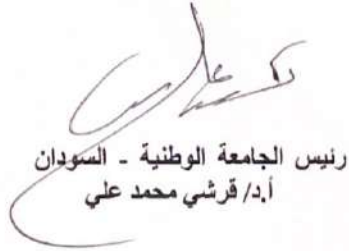 رئيس الجامعة الوطنية - السودان
أ.د/ قرشي محمد علي